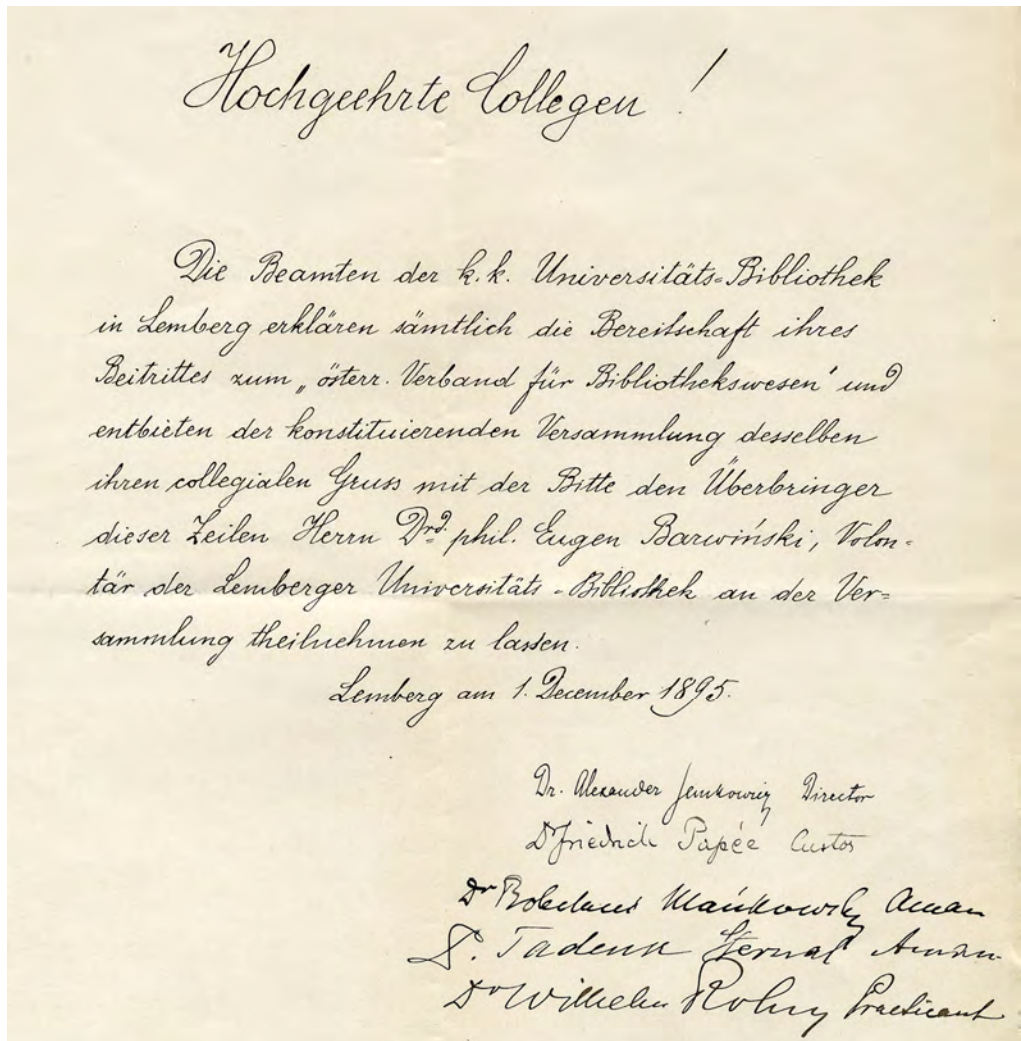 Hochgeehrte Collegen!
Die Beamten der k. k. Universitäts-Bibliothek
in Lemberg erklären sämtlich die Bereitschaft ihres
Beitrittes zum „österr. Verband für Bibliothekswesen" und
entbieten der konstituierenden Versammlung desselben
ihren collegialen Gruss mit der Bitte den Überbringer
dieser Zeilen Herrn Drd. phil. Eugen Barwiński, Volon=
tär der Lemberger Universitäts-Bibliothek an der Ver=
sammlung theilnehmen zu lassen.
Lemberg am 1. December 1895.
Dr. Alexander Director
Dr Friedrich Papée Custos
Dr Mańkowski
Tadeusz Sternal
Dr Wilhelm Rolny Practicant